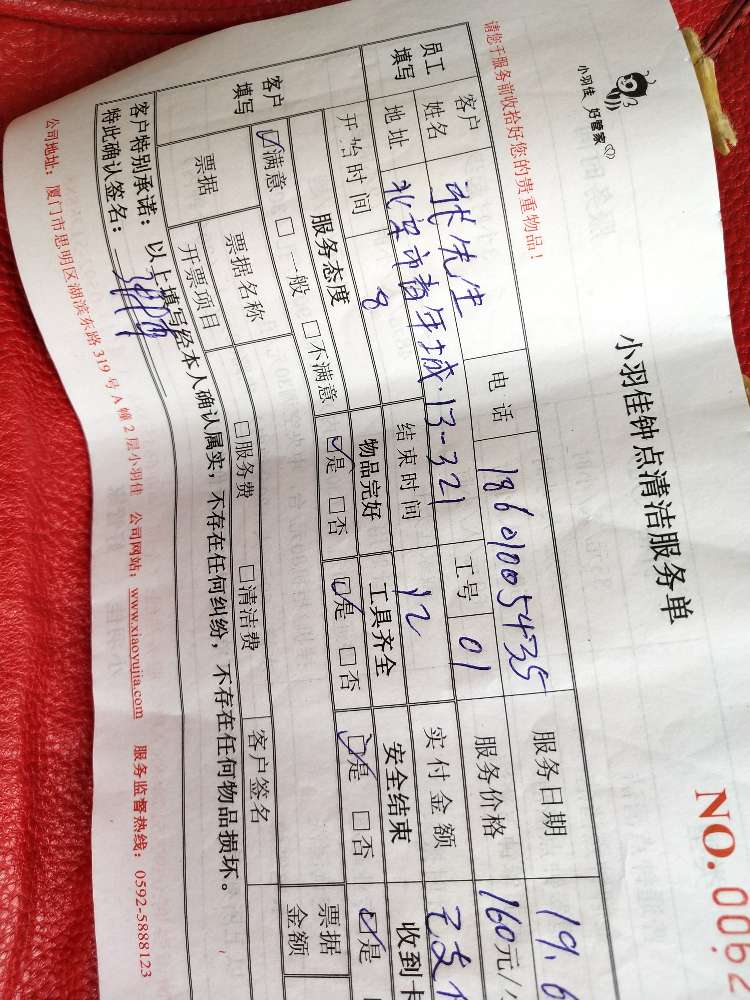 小羽佳 好管家
小羽佳钟点清洁服务单
NO. 0062
请您于服务前收拾好您的贵重物品!
员工填写
客户姓名 张先生 电话 18601005435 服务日期 19.6
地址 北京市青年城·13-321 工号 01 服务价格 160元/
开始时间 8 结束时间 12 实付金额 已支付
客户填写
服务态度 物品完好 工具齐全 安全结束 收到卡
☑满意 □一般 □不满意 ☑是 □否 ☑是 □否 ☑是 □否 ☑是
票据 票据名称 票据金额
开票项目 □服务费 □清洁费 客户签名
客户特别承诺:以上填写经本人确认属实,不存在任何纠纷,不存在任何物品损坏。
特此确认签名:
公司地址:厦门市思明区湖滨东路319号A幢2层小羽佳 公司网站:www.xiaoyujia.com 服务监督热线:0592-5888123